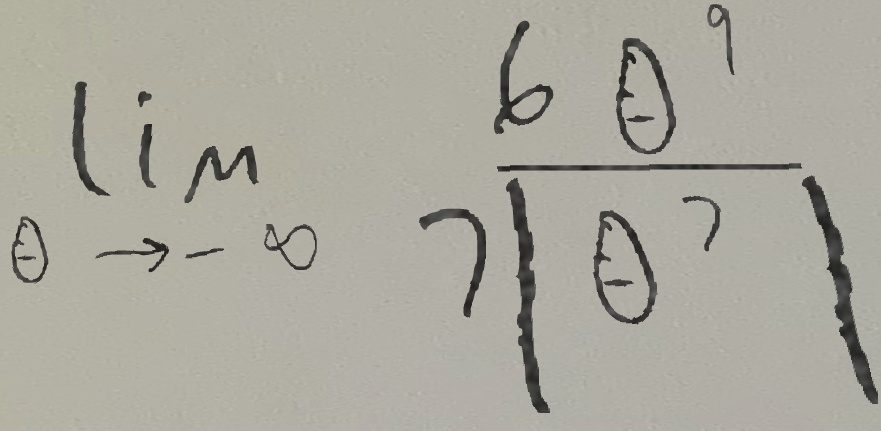 \lim_{\theta \to -\infty} \frac{6\theta^9}{7|\theta^7|}